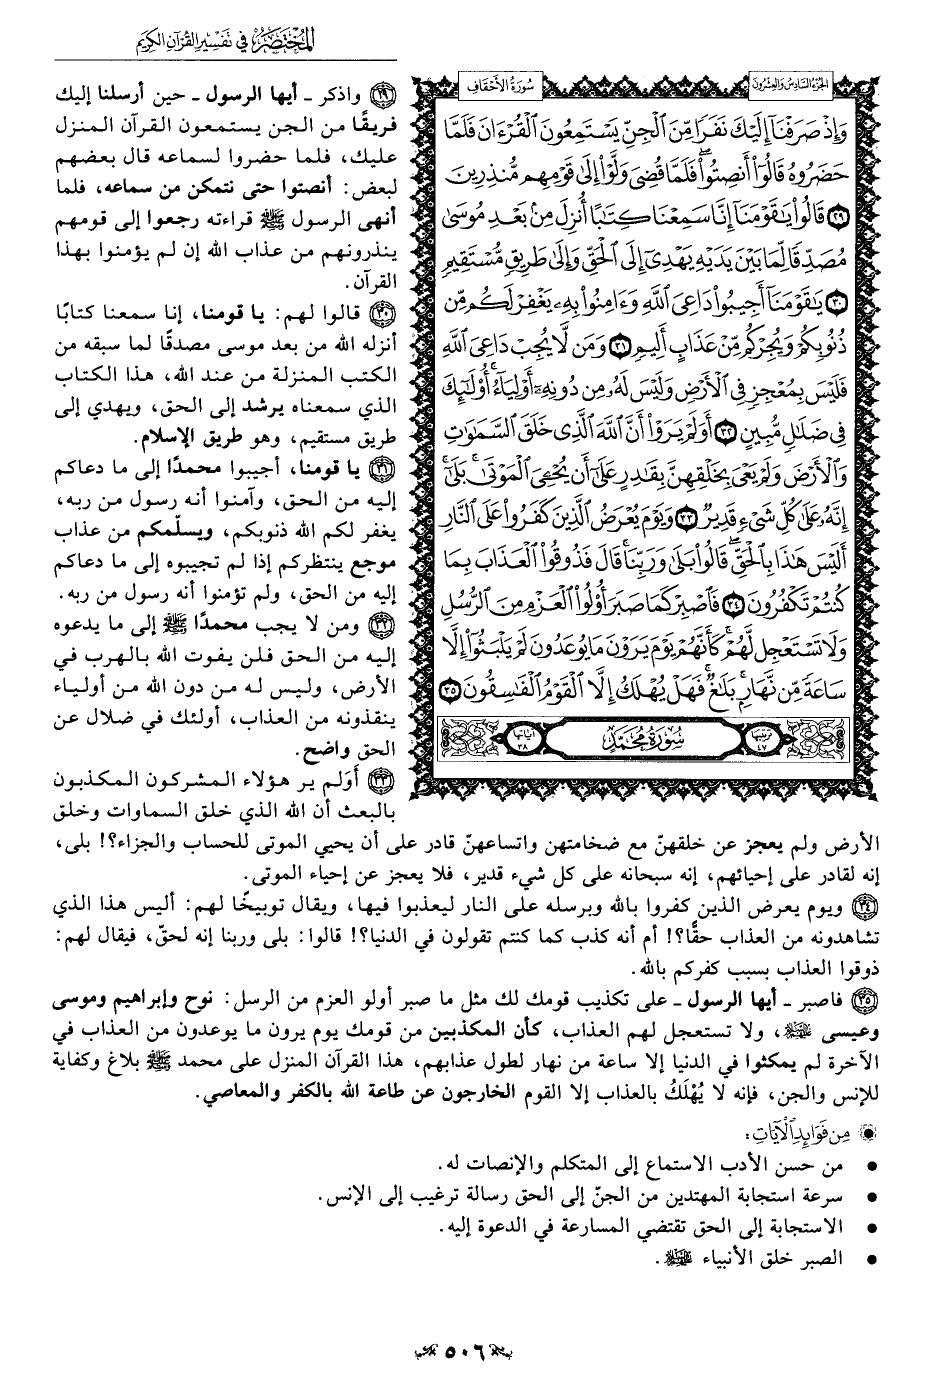 المختصر في تفسير القرآن الكريم
الجزء السادس والعشرون
سورة الأحقاف
وَإِذْ صَرَفْنَآ إِلَيْكَ نَفَرًا مِّنَ ٱلْجِنِّ يَسْتَمِعُونَ ٱلْقُرْءَانَ فَلَمَّا
حَضَرُوهُ قَالُوٓا۟ أَنصِتُوا۟ۖ فَلَمَّا قُضِىَ وَلَّوْا۟ إِلَىٰ قَوْمِهِم مُّنذِرِينَ
٢٩ قَالُوا۟ يَٰقَوْمَنَآ إِنَّا سَمِعْنَا كِتَٰبًا أُنزِلَ مِنۢ بَعْدِ مُوسَىٰ
مُصَدِّقًا لِّمَا بَيْنَ يَدَيْهِ يَهْدِىٓ إِلَى ٱلْحَقِّ وَإِلَىٰ طَرِيقٍ مُّسْتَقِيمٍ
٣٠ يَٰقَوْمَنَآ أَجِيبُوا۟ دَاعِىَ ٱللَّهِ وَءَامِنُوا۟ بِهِۦ يَغْفِرْ لَكُم مِّن
ذُنُوبِكُمْ وَيُجِرْكُم مِّنْ عَذَابٍ أَلِيمٍ ٣١ وَمَن لَّا يُجِبْ دَاعِىَ ٱللَّهِ
فَلَيْسَ بِمُعْجِزٍ فِى ٱلْأَرْضِ وَلَيْسَ لَهُۥ مِن دُونِهِۦٓ أَوْلِيَآءُۚ أُو۟لَٰٓئِكَ
فِى ضَلَٰلٍ مُّبِينٍ ٣٢ أَوَلَمْ يَرَوْا۟ أَنَّ ٱللَّهَ ٱلَّذِى خَلَقَ ٱلسَّمَٰوَٰتِ
وَٱلْأَرْضَ وَلَمْ يَعْىَ بِخَلْقِهِنَّ بِقَٰدِرٍ عَلَىٰٓ أَن يُحْـِۧىَ ٱلْمَوْتَىٰۚ بَلَىٰٓ
إِنَّهُۥ عَلَىٰ كُلِّ شَىْءٍ قَدِيرٌ ٣٣ وَيَوْمَ يُعْرَضُ ٱلَّذِينَ كَفَرُوا۟ عَلَى ٱلنَّارِ
أَلَيْسَ هَٰذَا بِٱلْحَقِّۖ قَالُوا۟ بَلَىٰ وَرَبِّنَاۚ قَالَ فَذُوقُوا۟ ٱلْعَذَابَ بِمَا
كُنتُمْ تَكْفُرُونَ ٣٤ فَٱصْبِرْ كَمَا صَبَرَ أُو۟لُوا۟ ٱلْعَزْمِ مِنَ ٱلرُّسُلِ
وَلَا تَسْتَعْجِل لَّهُمْۚ كَأَنَّهُمْ يَوْمَ يَرَوْنَ مَا يُوعَدُونَ لَمْ يَلْبَثُوٓا۟ إِلَّا
سَاعَةً مِّن نَّهَارٍۭۚ بَلَٰغٌۚ فَهَلْ يُهْلَكُ إِلَّا ٱلْقَوْمُ ٱلْفَٰسِقُونَ ٣٥
ترتيبها ٤٧
سورة محمد
آياتها ٣٨
٢٩ واذكر ـ أيها الرسول ـ حين أرسلنا إليك
فريقًا من الجن يستمعون القرآن المنزل
عليك، فلما حضروا لسماعه قال بعضهم
لبعض: أنصتوا حتى نتمكن من سماعه، فلما
أنهى الرسول ﷺ قراءته رجعوا إلى قومهم
ينذرونهم من عذاب الله إن لم يؤمنوا بهذا
القرآن.
٣٠ قالوا لهم: يا قومنا، إنا سمعنا كتابًا
أنزله الله من بعد موسى مصدقًا لما سبقه من
الكتب المنزلة من عند الله، هذا الكتاب
الذي سمعناه يرشد إلى الحق، ويهدي إلى
طريق مستقيم، وهو طريق الإسلام.
٣١ يا قومنا، أجيبوا محمدًا إلى ما دعاكم
إليه من الحق، وآمنوا أنه رسول من ربه،
يغفر لكم الله ذنوبكم، ويسلّمكم من عذاب
موجع ينتظركم إذا لم تجيبوه إلى ما دعاكم
إليه من الحق، ولم تؤمنوا أنه رسول من ربه.
٣٢ ومن لا يجب محمدًا ﷺ إلى ما يدعوه
إليه من الحق فلن يفوت الله بالهرب في
الأرض، وليس له من دون الله من أولياء
ينقذونه من العذاب، أولئك في ضلال عن
الحق واضح.
٣٣ أَوَلم ير هؤلاء المشركون المكذبون
بالبعث أن الله الذي خلق السماوات وخلق
الأرض ولم يعجز عن خلقهنّ مع ضخامتهن واتساعهنّ قادر على أن يحيي الموتى للحساب والجزاء؟! بلى،
إنه لقادر على إحيائهم، إنه سبحانه على كل شيء قدير، فلا يعجز عن إحياء الموتى.
٣٤ ويوم يعرض الذين كفروا بالله وبرسله على النار ليعذبوا فيها، ويقال توبيخًا لهم: أليس هذا الذي
تشاهدونه من العذاب حقًّا؟! أم أنه كذب كما كنتم تقولون في الدنيا؟! قالوا: بلى وربنا إنه لحقّ، فيقال لهم:
ذوقوا العذاب بسبب كفركم بالله.
٣٥ فاصبر ـ أيها الرسول ـ على تكذيب قومك لك مثل ما صبر أولو العزم من الرسل: نوح وإبراهيم وموسى
وعيسى ﷺ، ولا تستعجل لهم العذاب، كأن المكذبين من قومك يوم يرون ما يوعدون من العذاب في
الآخرة لم يمكثوا في الدنيا إلا ساعة من نهار لطول عذابهم، هذا القرآن المنزل على محمد ﷺ بلاغ وكفاية
للإنس والجن، فإنه لا يُهْلَكُ بالعذاب إلا القوم الخارجون عن طاعة الله بالكفر والمعاصي.
من فوائد الآيات:
• من حسن الأدب الاستماع إلى المتكلم والإنصات له.
• سرعة استجابة المهتدين من الجنّ إلى الحق رسالة ترغيب إلى الإنس.
• الاستجابة إلى الحق تقتضي المسارعة في الدعوة إليه.
• الصبر خلق الأنبياء ﷺ.
٥٠٦